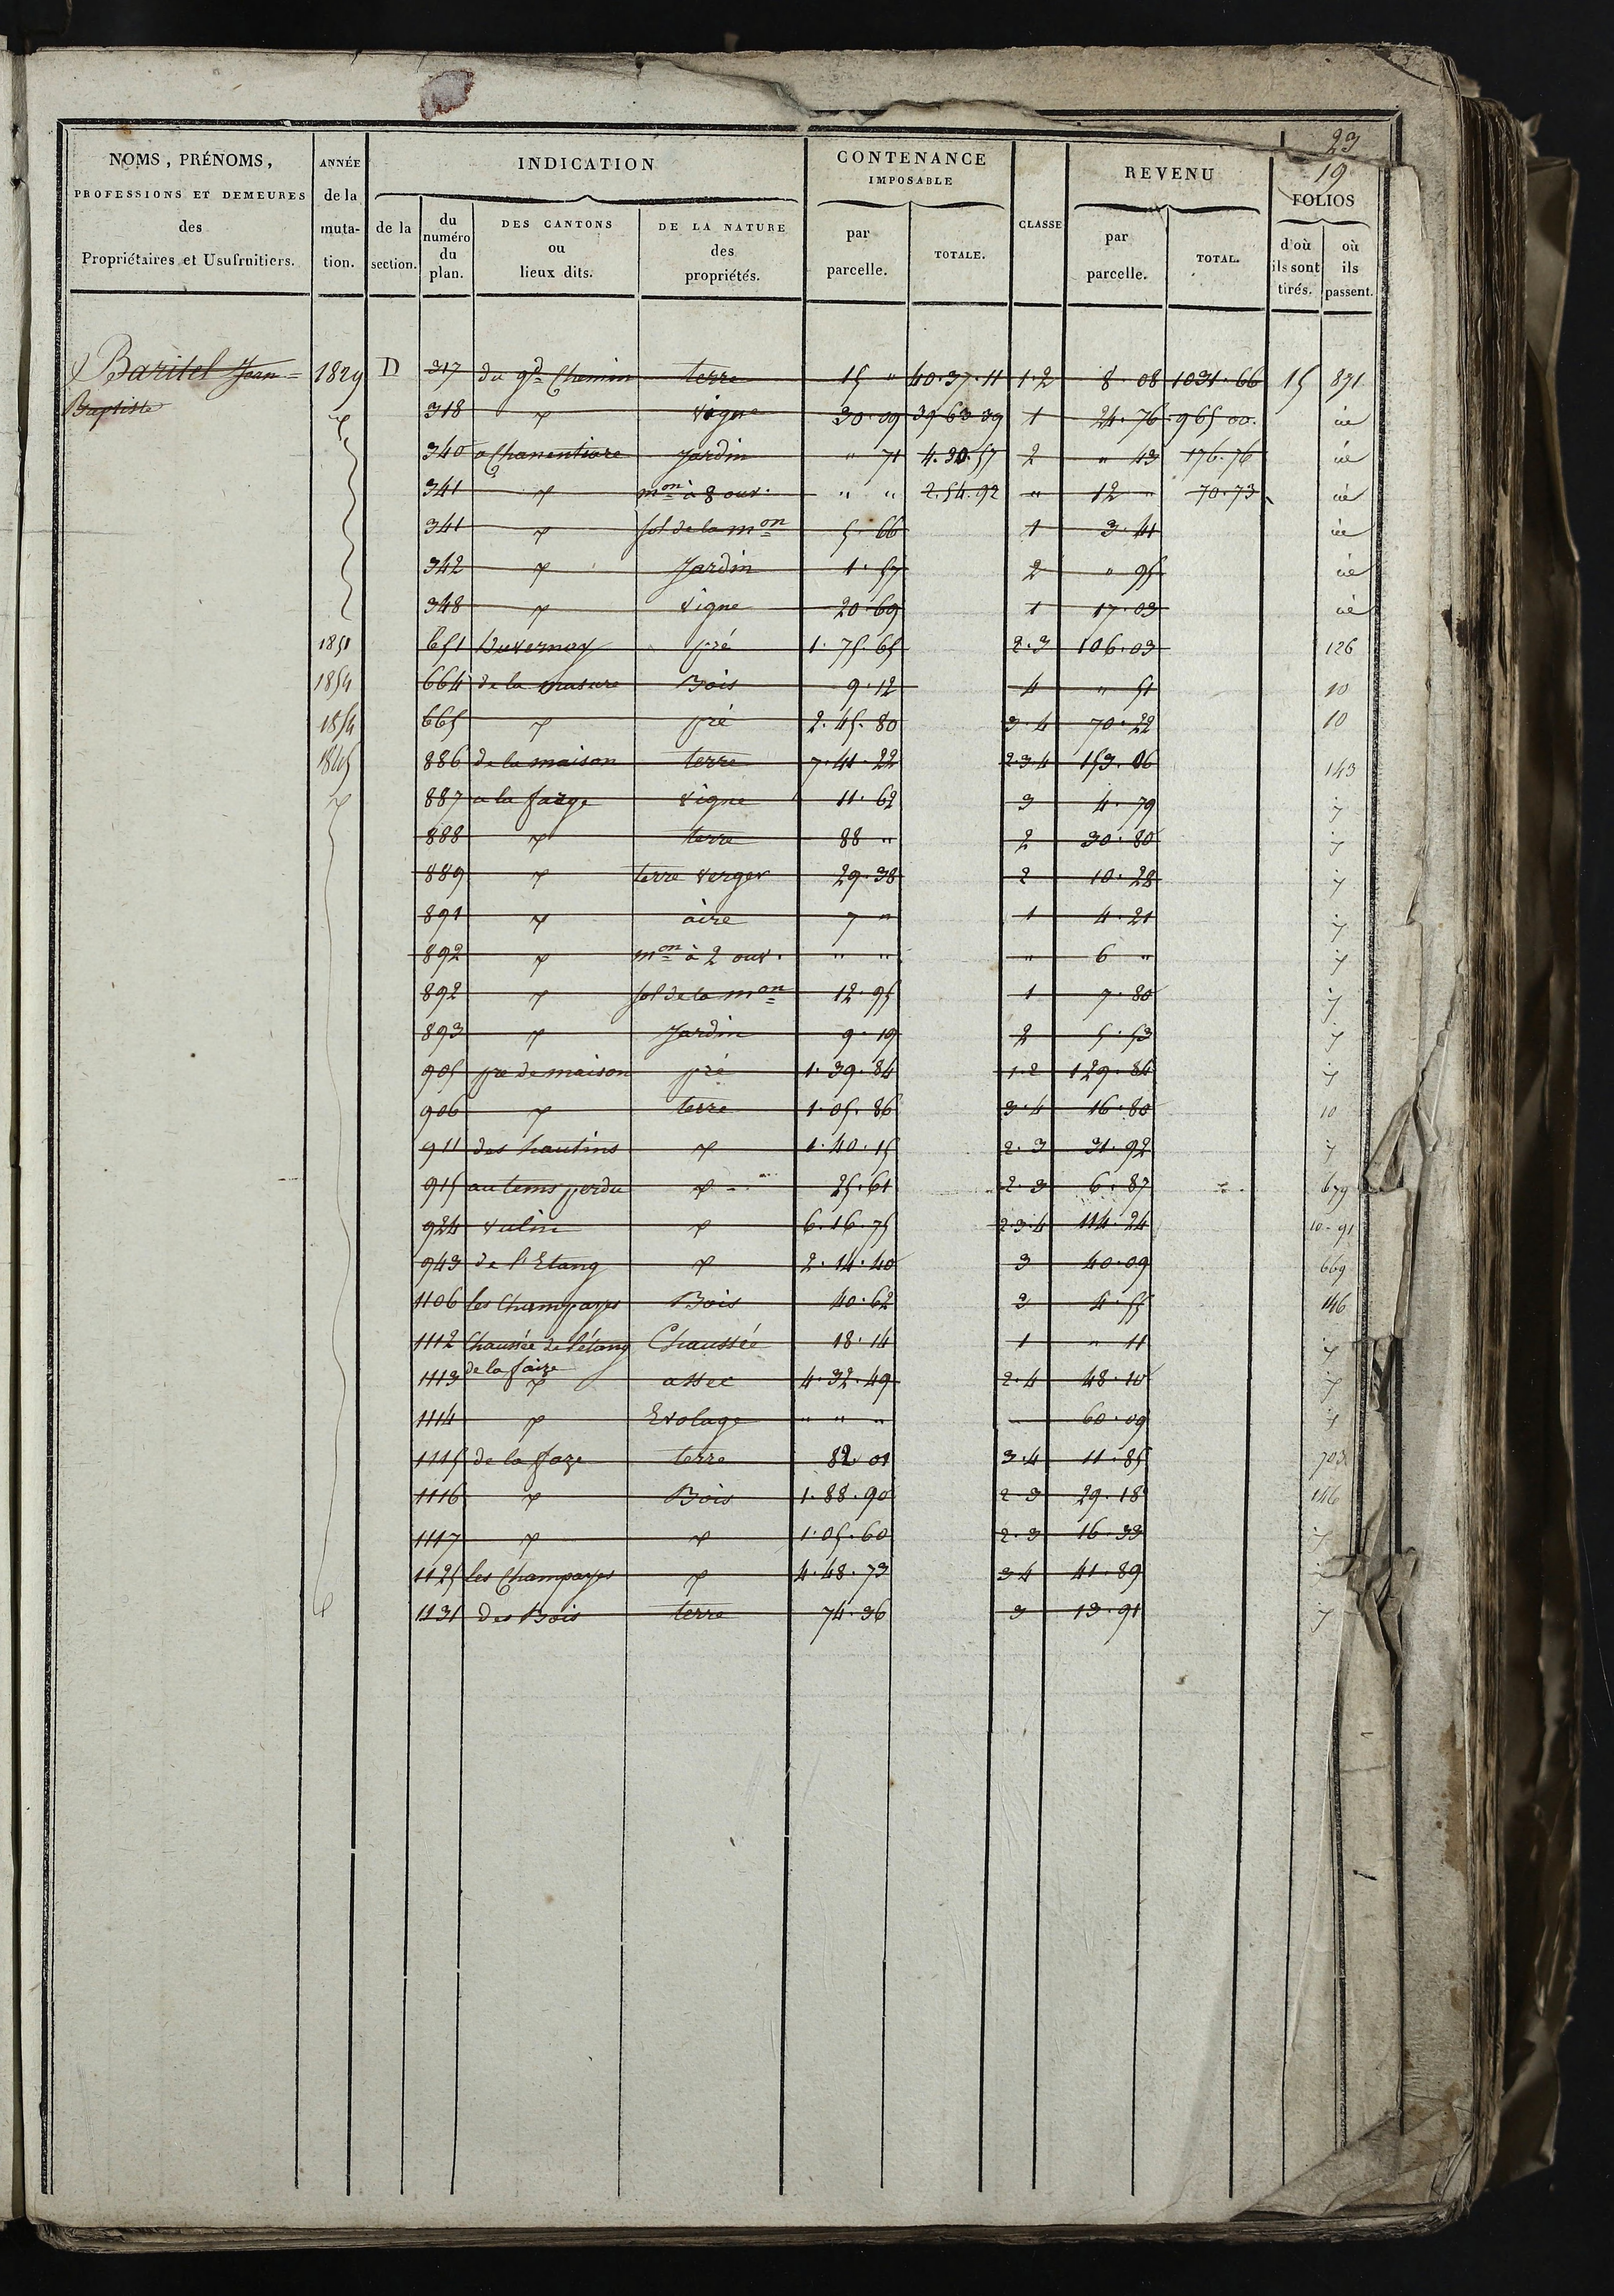 23
19
NOMS, PRÉNOMS, PROFESSIONS ET DEMEURES des Propriétaires et Usufruitiers.
ANNÉE de la muta-tion.
INDICATION
de la section.
du numéro du plan.
DES CANTONS ou lieux dits.
DE LA NATURE des propriétés.
CONTENANCE IMPOSABLE
par parcelle.
TOTALE.
CLASSE
REVENU
par parcelle.
TOTAL.
FOLIOS
d'où ils sont tirés.
où ils passent.
Baritel Jean= 1829 D 317 du gd. Chemin terre 15 " 40.37.11 1.2 8.08 1031.66 15 891
Baptiste 318 vigne 30.09 39 63 39 1 24.76 965 00.
340 Jardin " 71 4.30.57 2 " 43 176.76
341 mon à 8 ouv. " " 2.54.92 " 12 " 70.73
341 sol de la mon 5.66 1 3.41
342 Jardin 1.57 2 " 95
348 vigne 20.69 1 17.03
1851 651 Duvernay pré 1.75.65 2.3 106.03 126
1854 664 de la masure Bois 9.12 4 " 51 10
1854 665 pré 2.45.80 3.4 70.22 10
1845 886 de la maison terre 7.41.22 2.3.4 153.06 143
887 a la farge vigne 11.62 3 4.79
888 terre 88 " 2 30.80
889 terre verger 29.38 2 10.28
891 aire 7 " 1 4.21
892 mon à 2 ouv. " " " 6 "
892 sol de la mon 12.95 1 7.80
893 Jardin 9.19 2 5.53
905 pré de maison pré 1.39.84 1.2 129.84
906 terre 1.05.86 3.4 16.80 10
911 des hautins 1.40.15 2.3 31.92
915 au tems perdu 25.61 2.3 6.87 679
924 vulin 6.16.75 2.3.4 114.24 10-91
943 de l'Etang 2.14.40 3 40.09 669
1106 les Champayes Bois 40.62 2 4.55 146
1112 Chaussée de l'étang Chaussée 18.14 1 " 11
de la faize
1113 assec 4.32.49 2.4 48.10
1114 Evolage " " " 60.09
1115 de la faze terre 82 01 3.4 11.85 703
1116 Bois 1.88.90 2 3 29.18 146
1117 1.05.60 2.3 16.33
1125 les Champayes 4.48.73 3 4 41.89
1131 des Bois terre 74.36 3 13.91